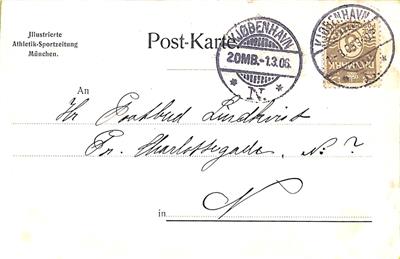 Jllustrierte
Athletik-Sportzeitung
München.
Post-Karte.
KJØBENHAVN
2OMB.-1.3.06.
N.
KJØBENHAVN
An
Hr Postbud Lindkvist
Fr. Charlottegade, No 7
in N